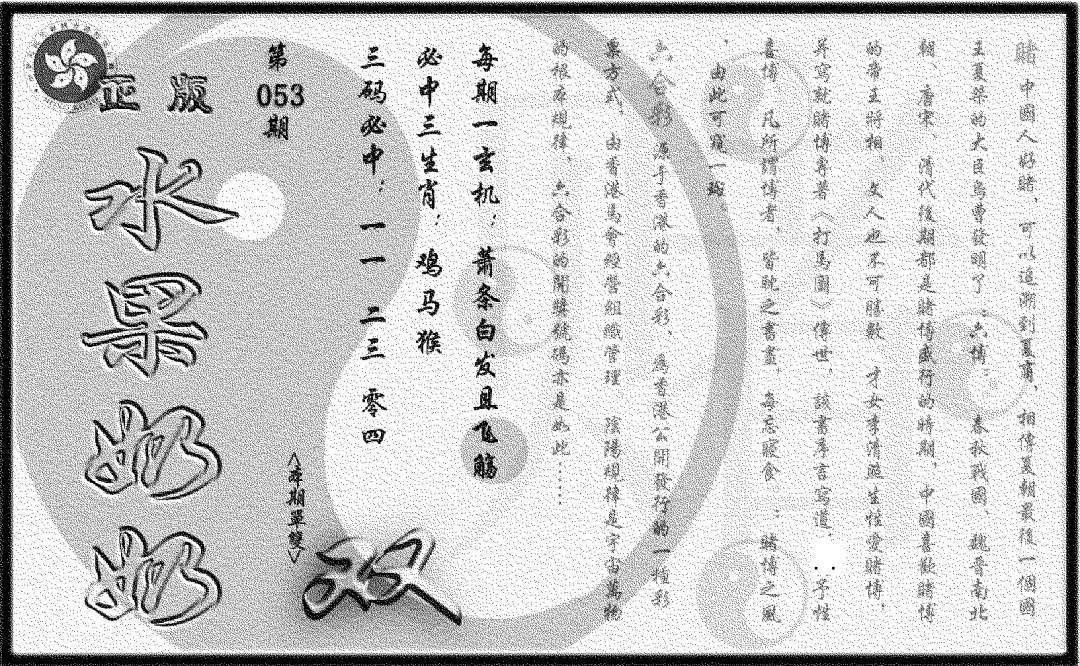 賭中國人好賭，可以追溯到夏商，相傳夏朝最後一個國
王夏桀的大臣烏曹發明了：六博；春秋戰國、魏晉南北
朝、唐宋、清代後期都是賭博盛行的時期，中國喜歡賭博
的帝王將相、文人也不可勝數，才女李清照生性愛賭博，
并寫就賭博專著《打馬圖》傳世，該書序言寫道、..予性
喜博，凡所謂博者，皆耽之晝夜，每忘寢食：賭博之風
，由此可窺一斑。
六合彩源于香港的六合彩、為香港公開發行的一種彩
票方式，由香港馬會經營組織管理，陰陽規律是宇宙萬物
的根本規律，六合彩的開獎號碼亦是如此……
每期一玄机：萧条白发且飞觞
必中三生肖：鸡马猴
三码必中：一一 二三 零四
第053期
<本期單雙>
双
正版
水果奶奶